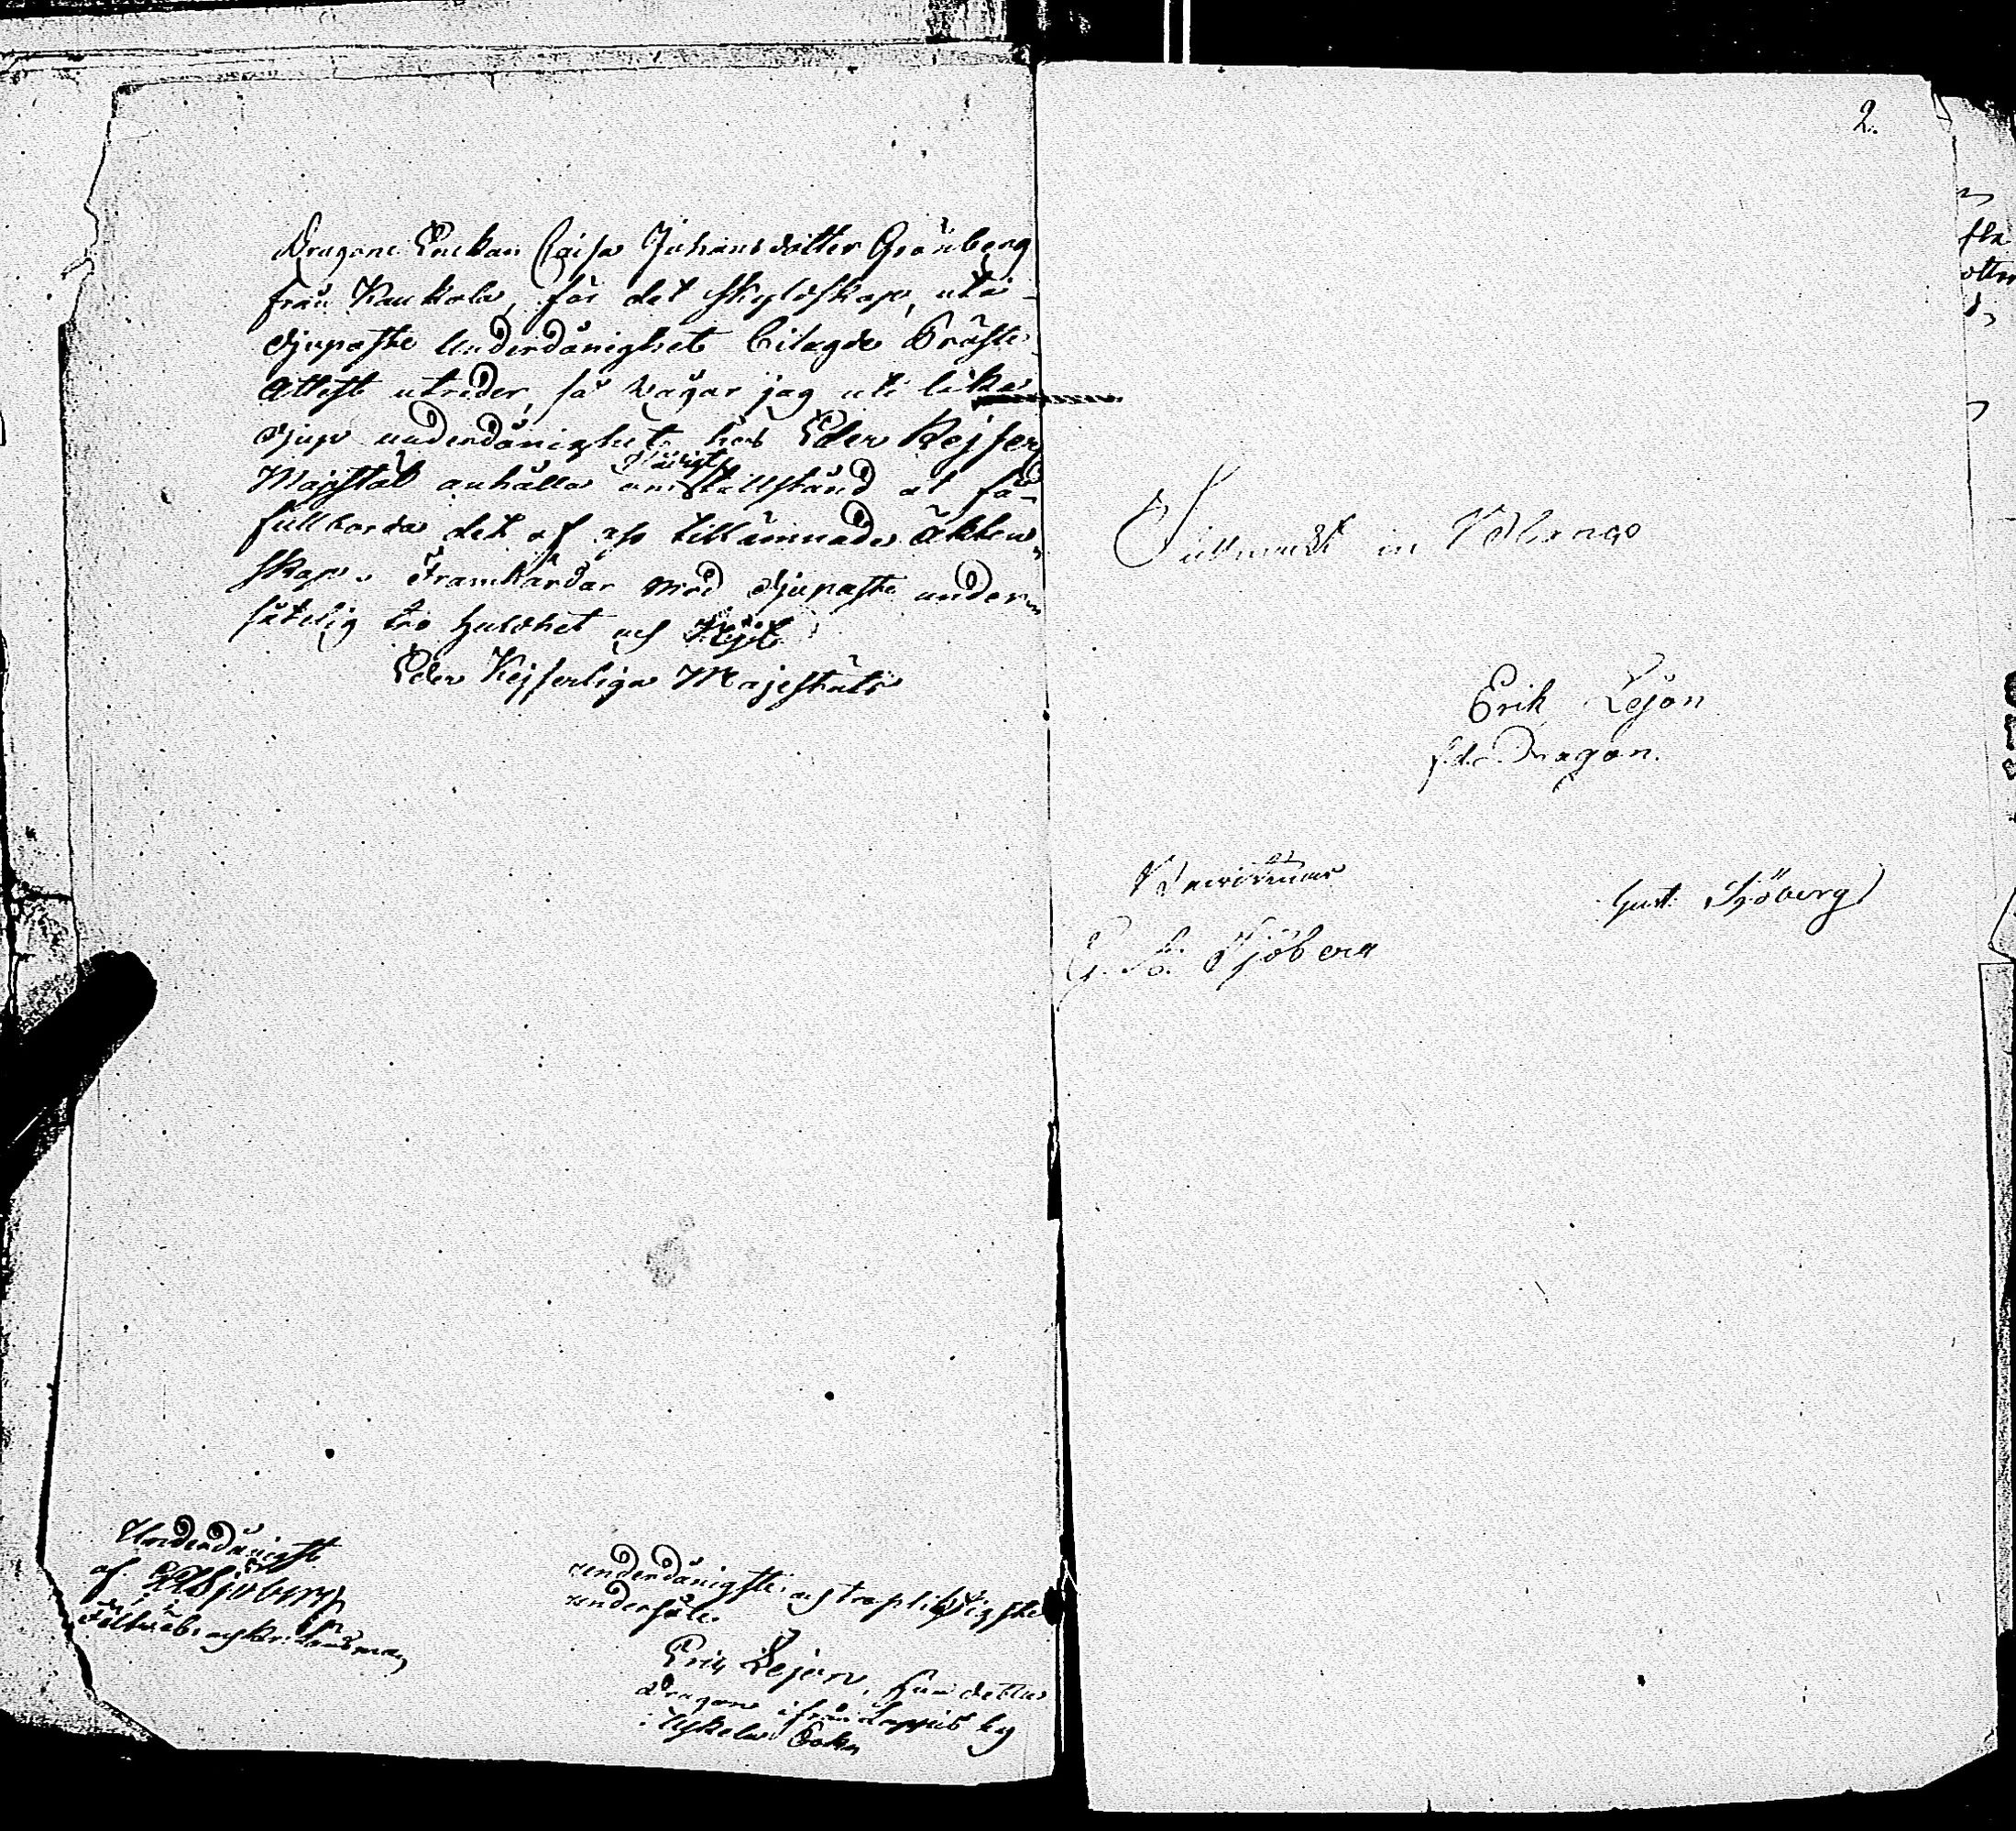 Dragone Enckan Caisa Johansdotter Grönberg
från Kaukola, för det skyldskap, uti
djupaste Underdånighet bilagde Präste
Attest utreder, så vågar jag uti lika
djup underdånighet hos Eder Kejser
Majestät anhålla om tillstånd at få
fullborda det af oss tillämnade äkten
skap. Framhärdar med djupaste under
såtelig tro huldhet och
Eder Kejserliga Majestäts
Underdånigst
af Sjöberg
underdånigste och tropliktigste
undersåte
Erik Lejon, före detta
Dragon ifrån Lappis by
i Uskela Sokn
2.
Erik Lejon
f.d. Dragon.
Gust. Sjöberg
G. Sjöberg